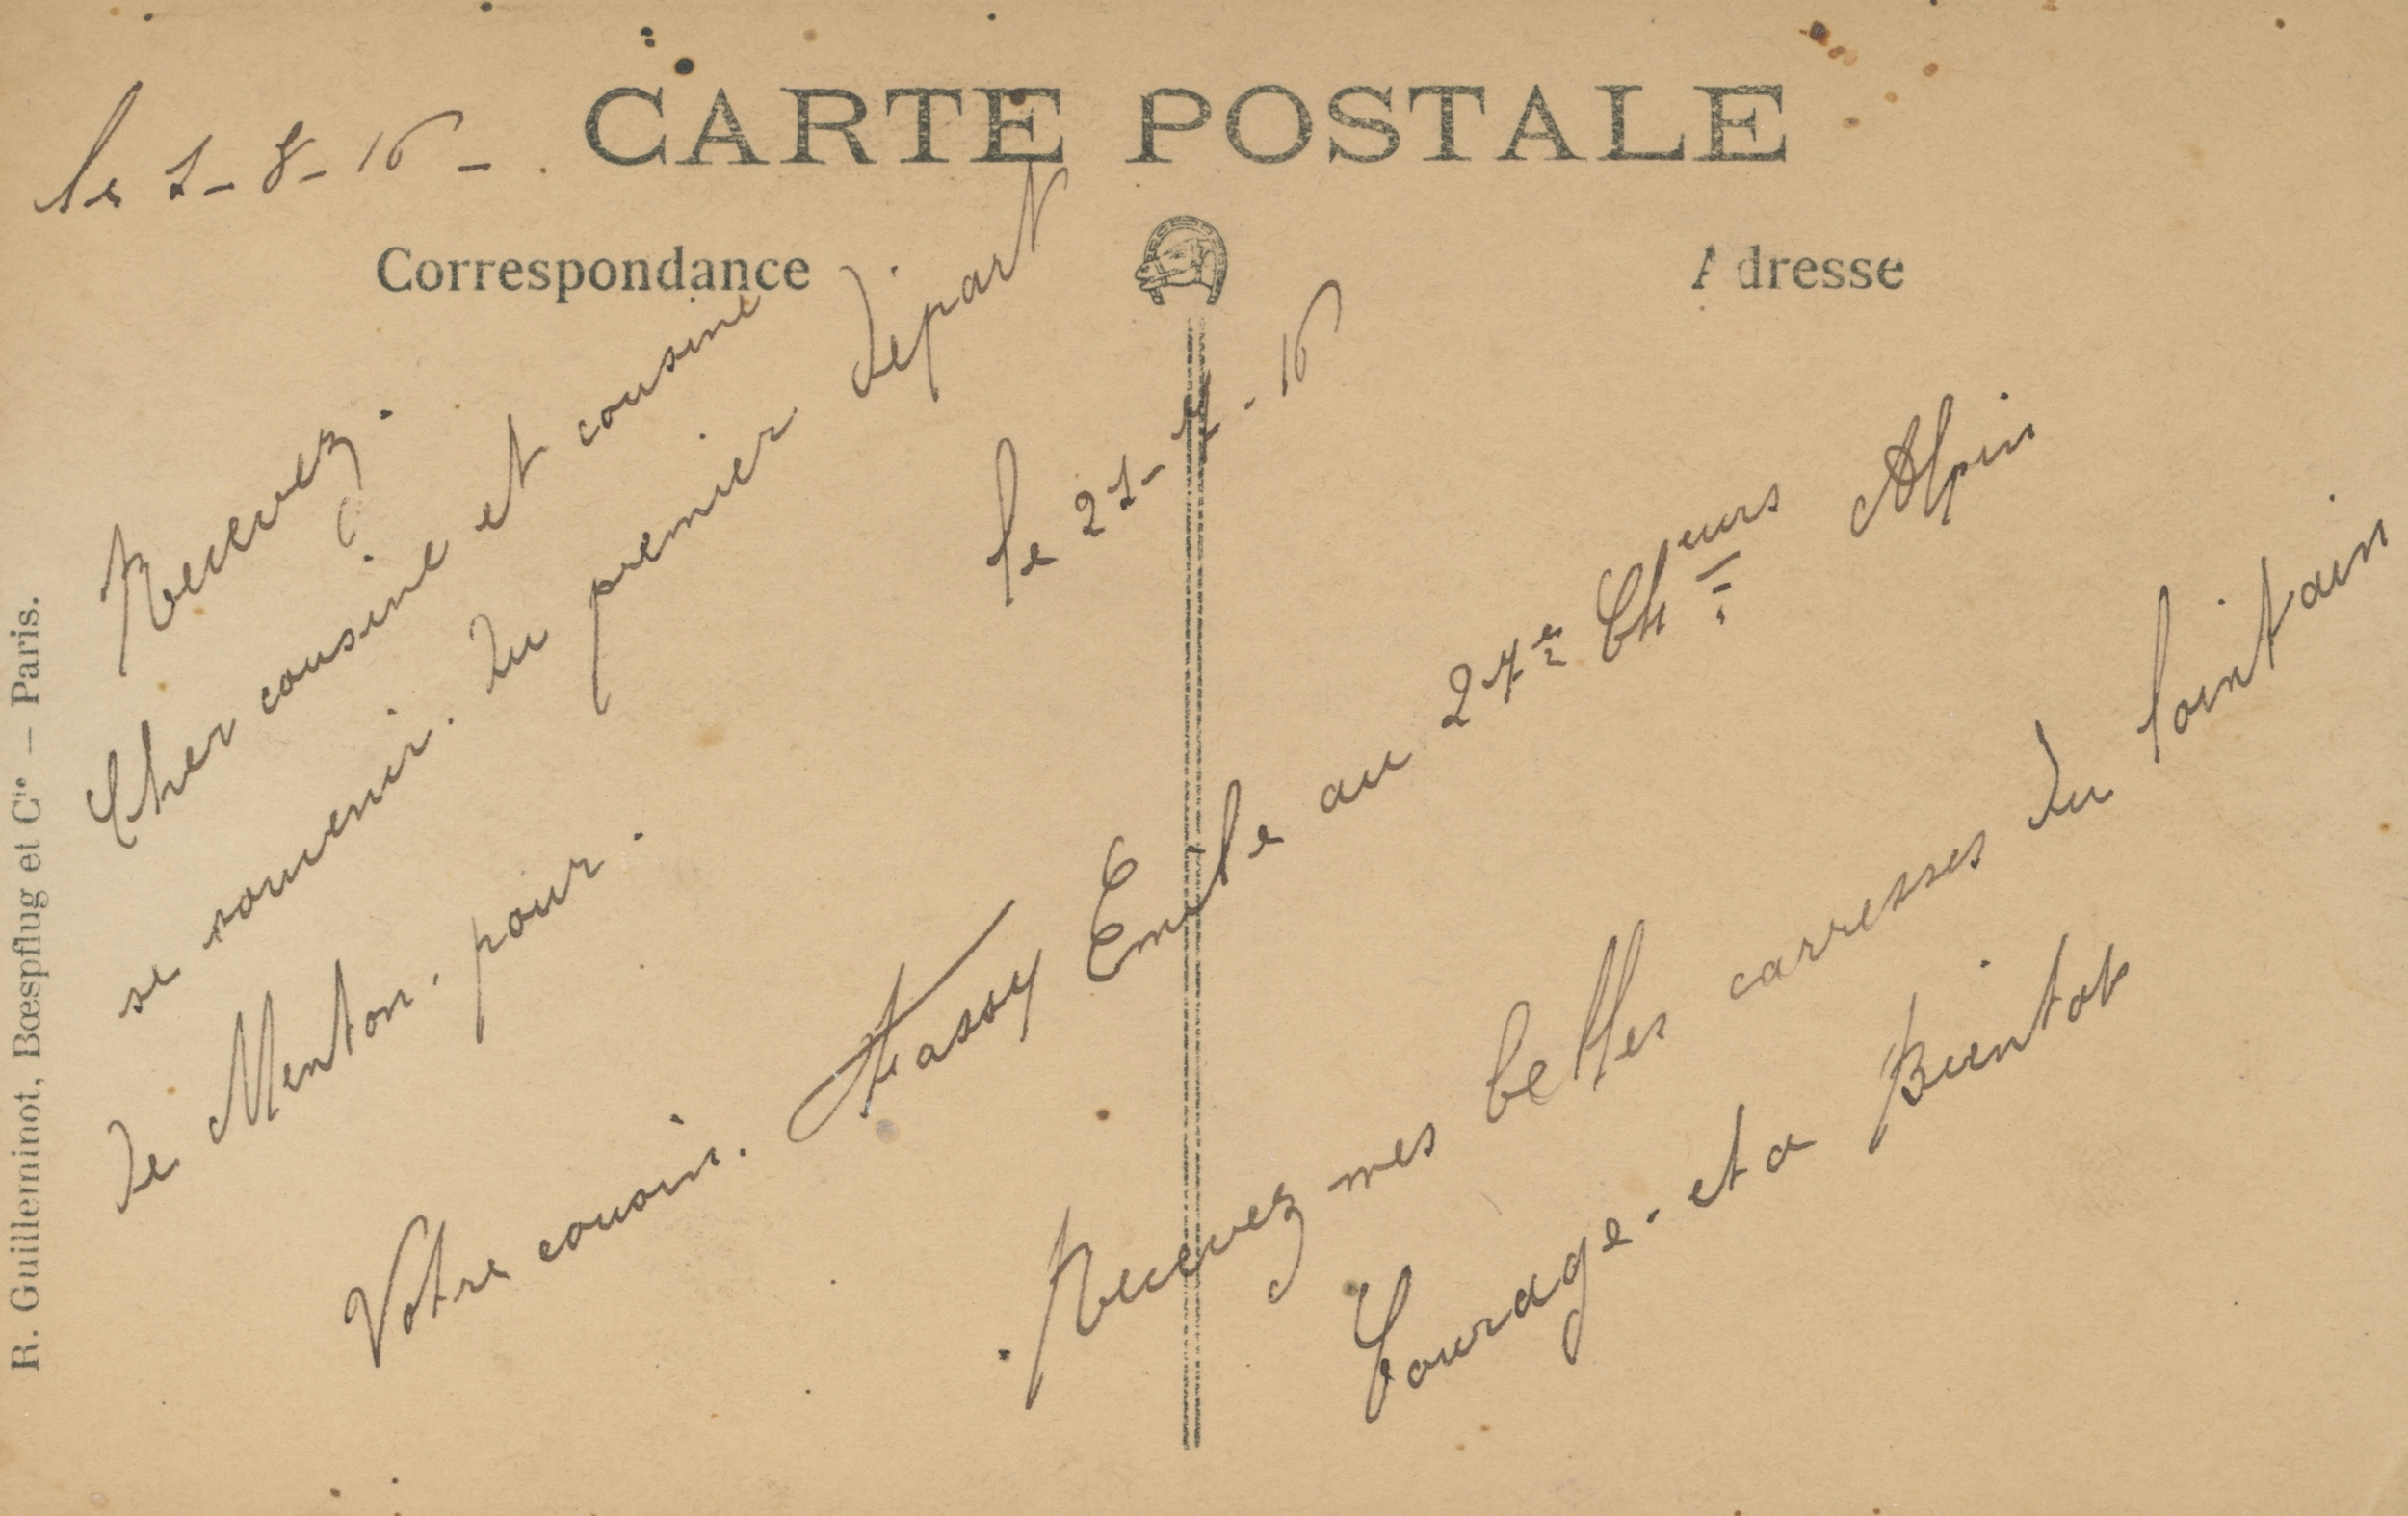 CARTE POSTALE
Le 1-8-16-
Correspondance
Adresse
Recevez.
Cher cousine et cousine
se souvenir. du premier départ
de Menton. pour. le 21-7-16
Votre cousin. Fassy Emile au 27e Cheurs Alpin
Recevez mes belles carresses du lointain
Courage. et a Bientot
R. Guilleminot, Bœspflug et Cie – Paris.